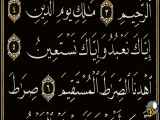 ٱلرَّحِيمِ ٣ مَٰلِكِ يَوۡمِ ٱلدِّينِ
٤ إِيَّاكَ نَعۡبُدُ وَإِيَّاكَ نَسۡتَعِينُ ٥
ٱهۡدِنَا ٱلصِّرَٰطَ ٱلۡمُسۡتَقِيمَ ٦ صِرَٰطَ